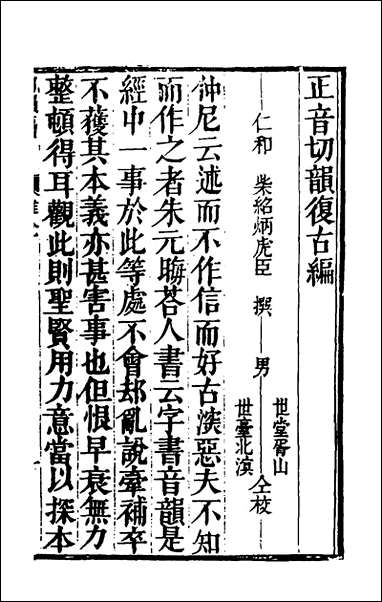 正音切韻復古編
仁和 柴紹炳虎臣 撰 男 世堂胥山 世臺北溟 仝校
仲尼云述而不作信而好古深惡夫不知
而作之者朱元晦荅人書云字書音韻是
經中一事於此等處不會却亂說牽補卒
不獲其本義亦甚害事也但恨早衰無力
整頓得耳觀此則聖賢用力意當以探本